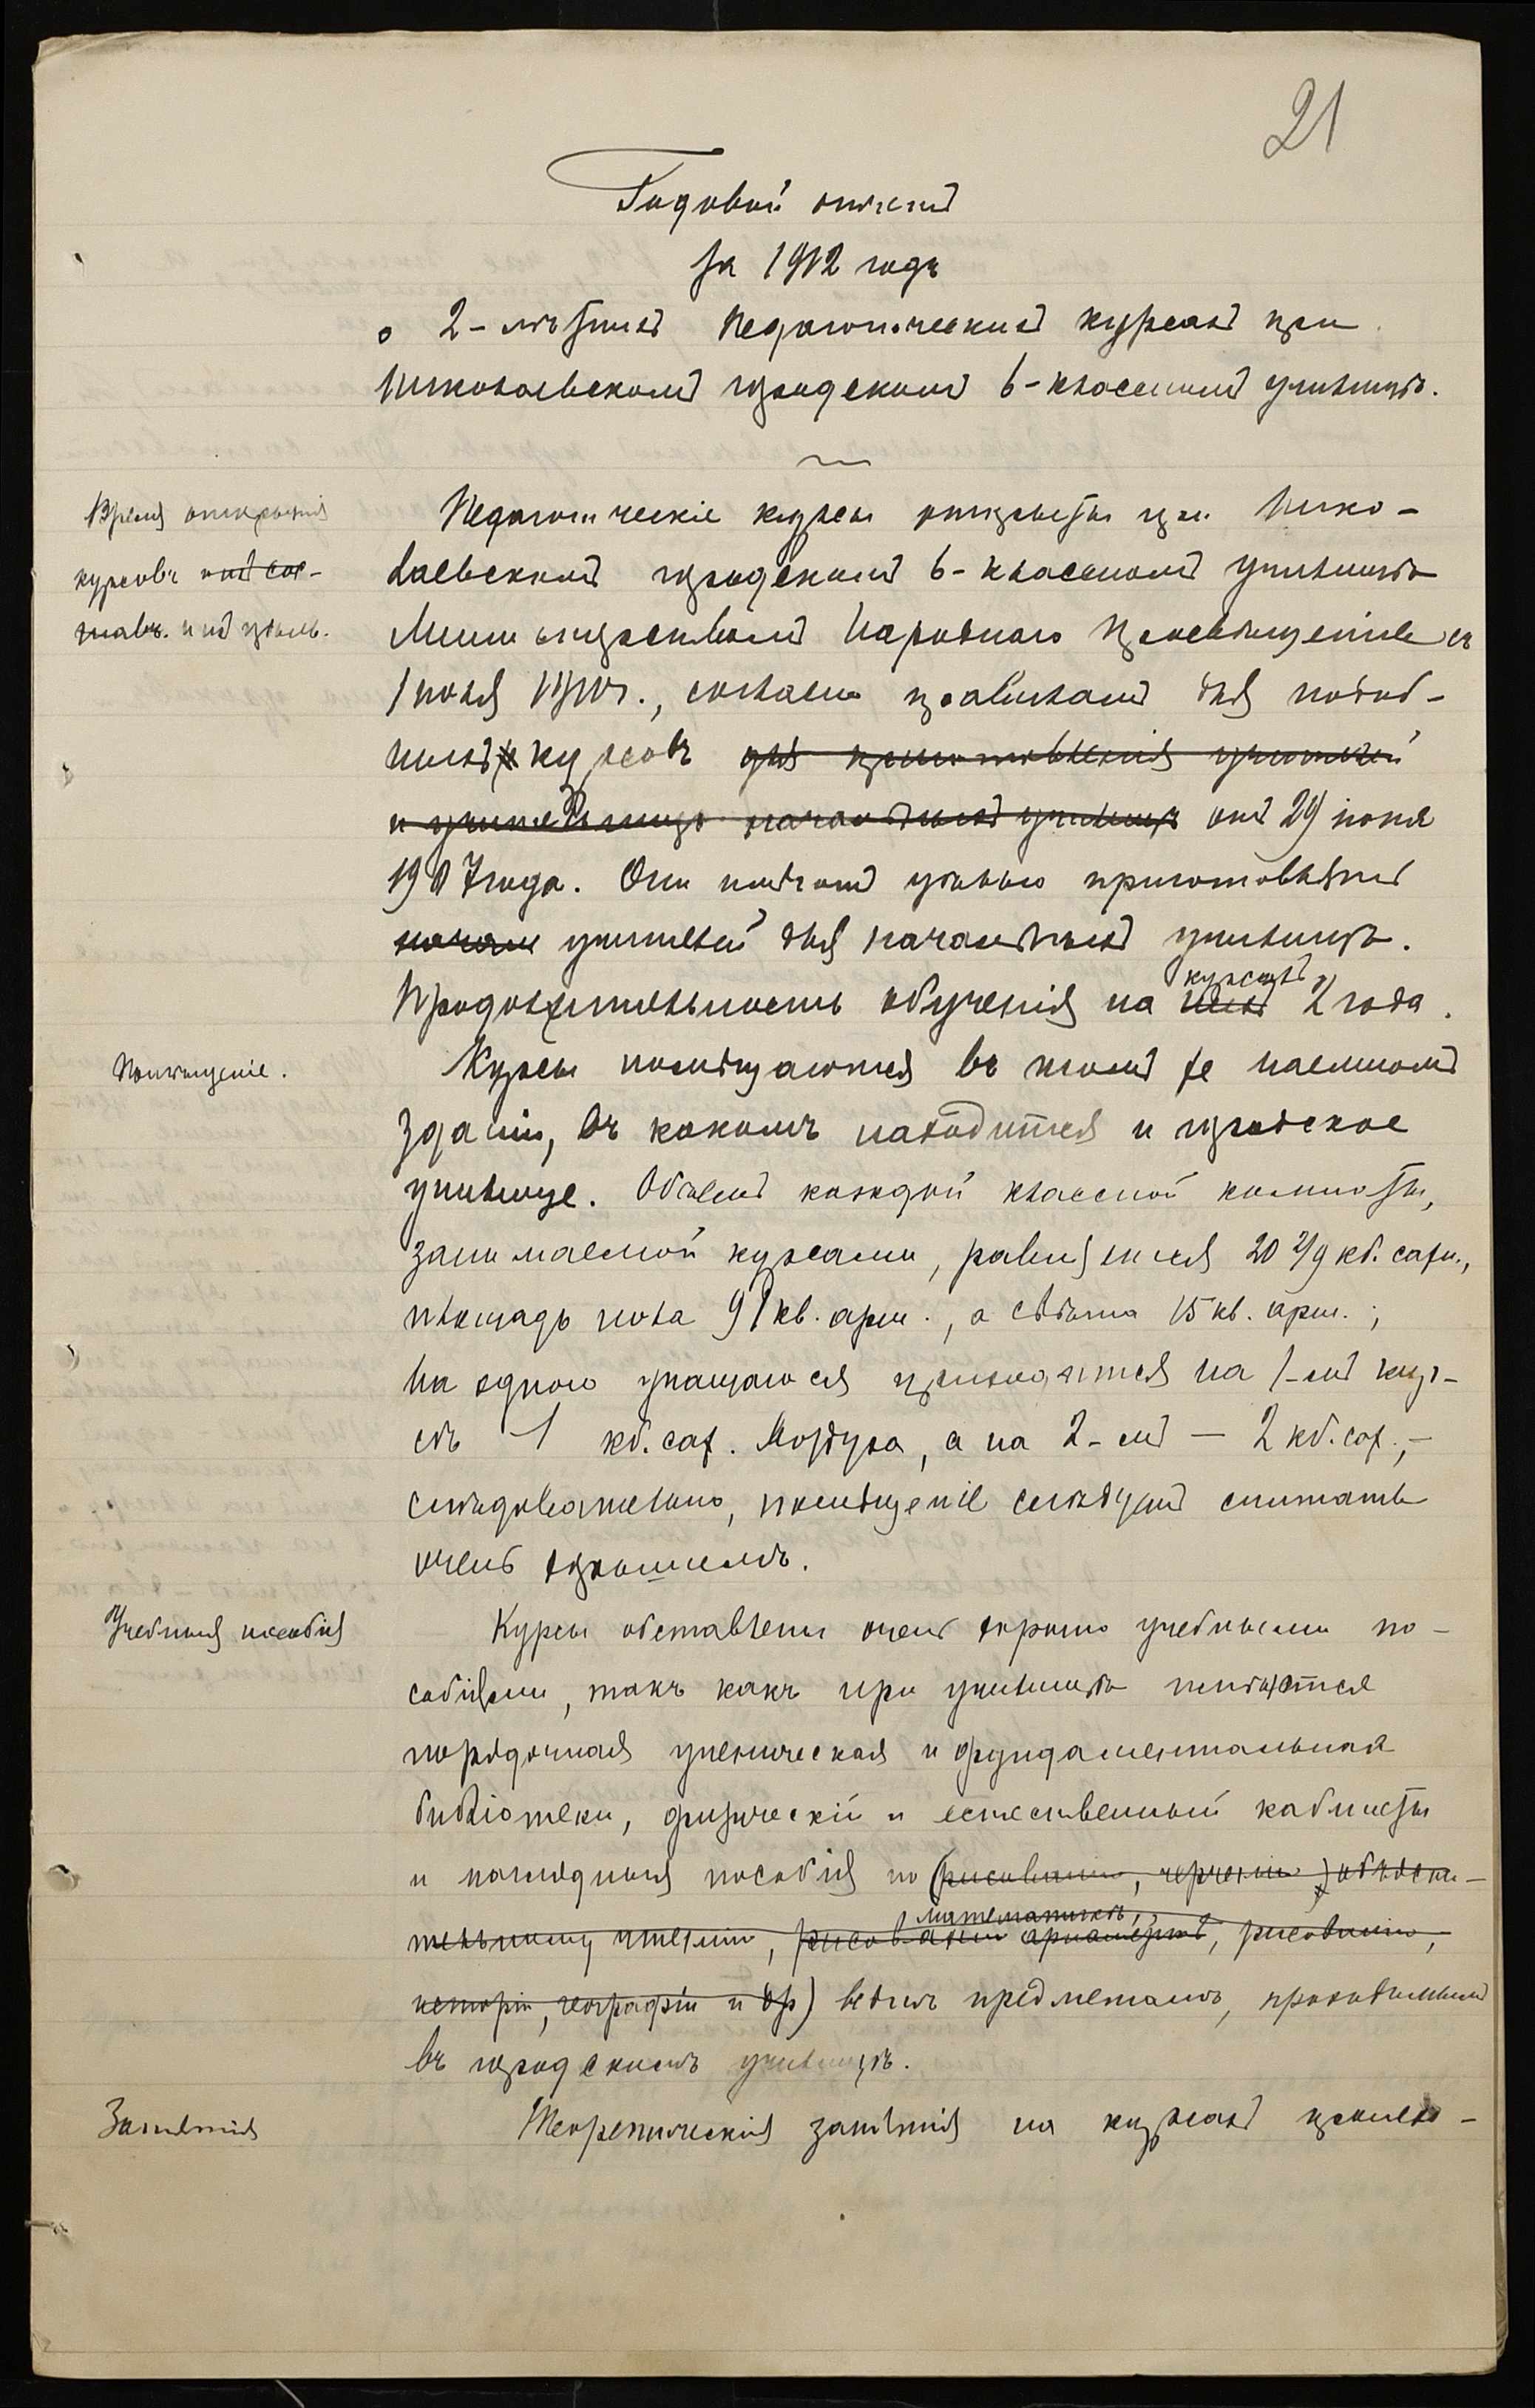 21
Годовой отчетъ
за 1912 годъ
о 2-лѣтнихъ педагогическихъ курсахъ при
Николаевскомъ городскомъ 6-классномъ училищѣ.
Время открытія
курсовъ, ихъ сос-
тавъ и ихъ цѣль.
Педагогическіе курсы открыты при Нико-
лаевскомъ городскомъ 6-классномъ училищѣ
Министерствомъ Народнаго Просвѣщенія съ
1 іюля г., согласно правиламъ для подоб-
ныхъ курсовъ для приготовленія учителей
и учительницъ начальныхъ училищъ отъ 29 іюня
1907 года. Они имѣютъ цѣлью приготовленіе
начальн учителей для начальныхъ училищъ.
курсахъ
Продолжительность обученія на нихъ 2 года.
Помѣщеніе.
Курсы помѣщаются въ томъ же наемномъ
зданіи, въ какомъ находится и городское
училище. Объемъ каждой классной комнаты,
занимаемой курсами, равняется 20 2/9 кб. саж.,
площадь пола 91 кв. арш., а свѣта 15 кв. арш.;
на одного учащагося приходится на 1-мъ кур-
сѣ 1 кб. саж. воздуха, а на 2-мъ — 2 кб. саж., —
слѣдовательно, помѣщеніе слѣдуетъ считать
очень хорошимъ.
Учебныя пособія
Курсы обставлены очень хорошо учебными по-
собіями, такъ какъ при училищѣ имѣются
порядочная ученическая и фундаментальная
библіотеки, физическій и естественный кабинеты
и наглядныя пособія по (рисованію, черченію, объясни-
математикѣ,
тельному чтенію, рисованію ариѳметикѣ, рисованію,
исторіи, географіи и др) всѣмъ предметамъ, проходимымъ
въ городскомъ училищѣ.
Занятія
Теоретическія занятія на курсахъ произво-